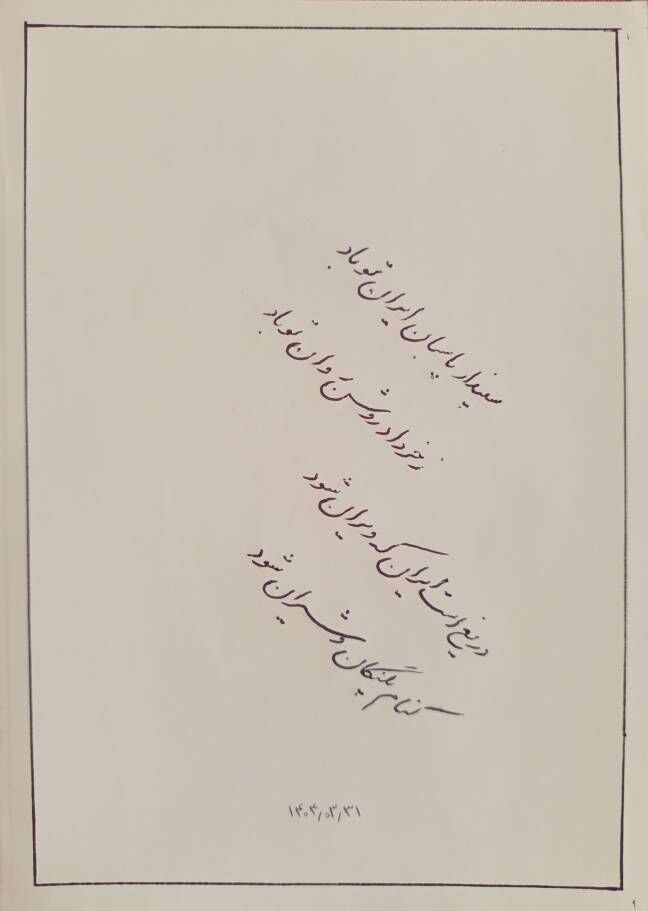 سپندار پاسبان ایران تو باد
ز خرداد روشن روان تو باد
دریغ است ایران که ویران شود
کنام پلنگان و شیران شود
۱۴۰۴/۰۳/۳۱